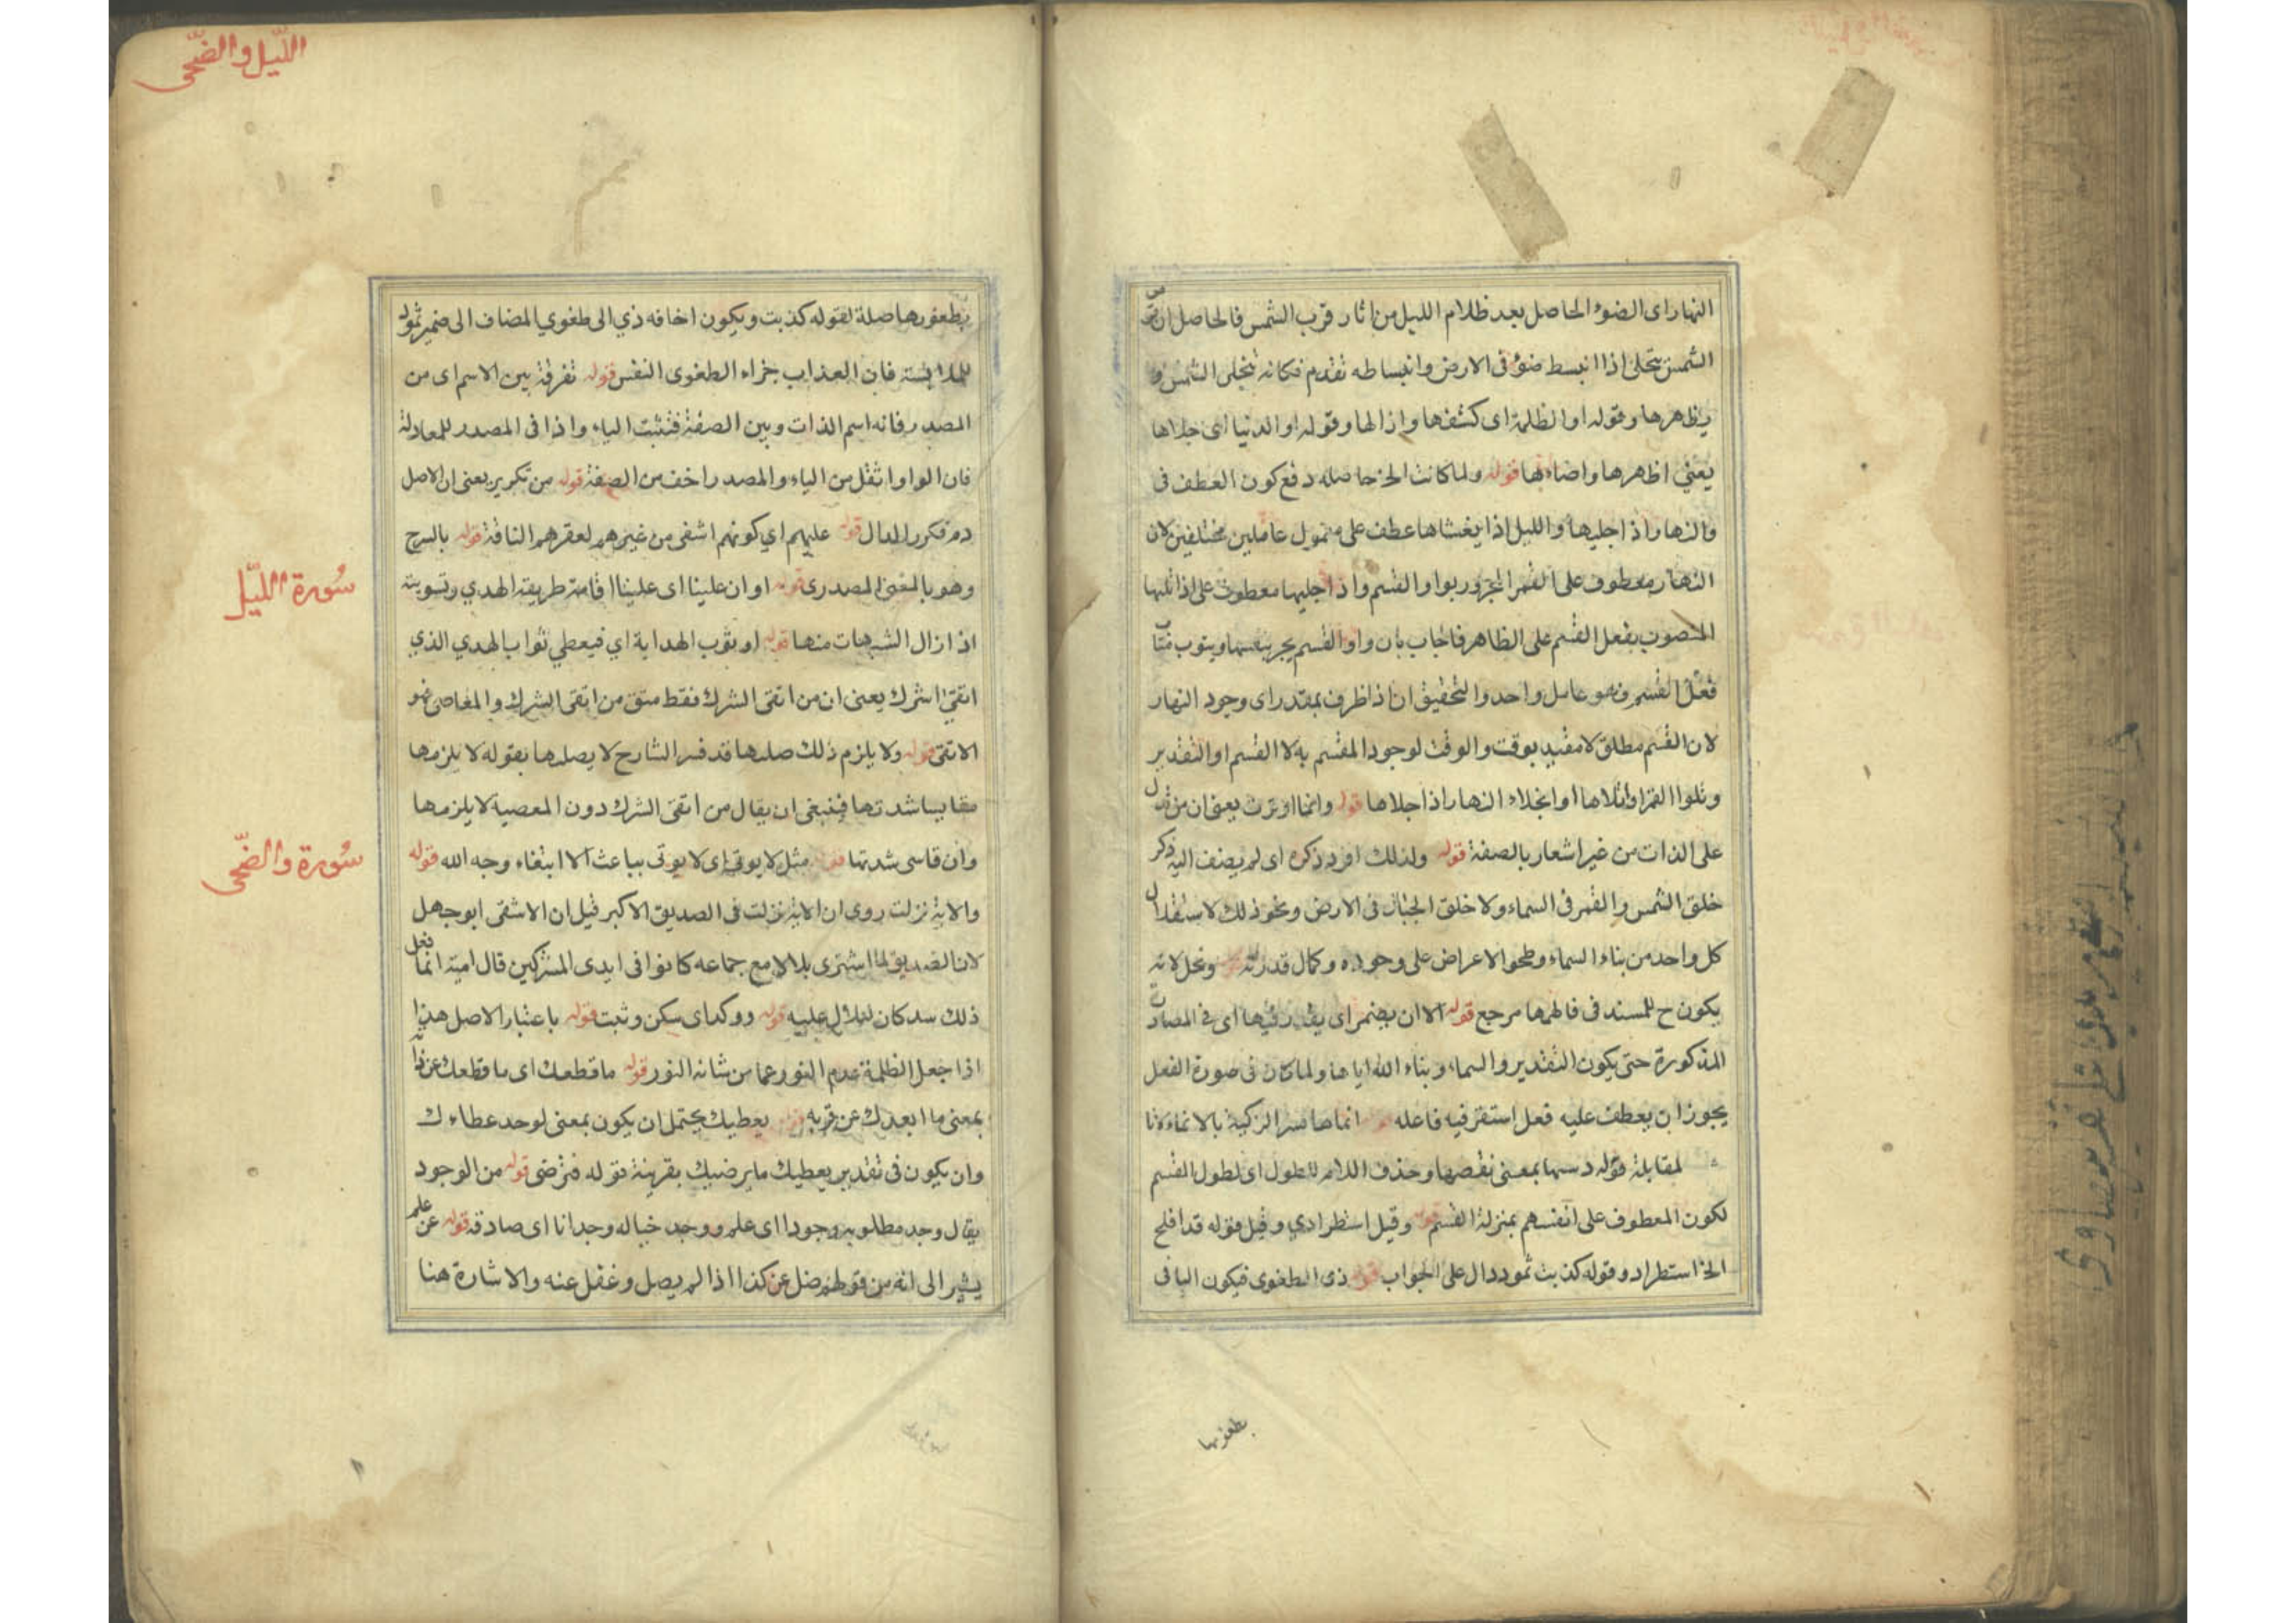 النهار اى الضوء الحاصل بعد ظلام الليل من اثار قرب الشمس فالحاصل ان
الشمس يتجلى اذا انبسط ضوء فى الارض وانبساطه تقدم فكانه تجلى الشمس و
يظهرها وقوله او الظلمة اى كشفها وازالها وقوله او الدنيا اى جلاها
يعني اظهرها واضاءتها قوله ولما كانت الخ حاصله دفع كون العطف فى
والنهار اذ اجليها والليل اذا يغشاها عطف على معمول عاملين مختلفين لان
النهار معطوف على القمر المجرور بواو القسم واذا جليها معطوف على اذا تليها
المنصوب بفعل القسم على الظاهر فاجاب بان واو القسم يجر بنفسها وينوب
فعل القسم فهو عامل واحد والتحقيق ان اذا ظرف بمقدر اى وجود النهار
لان القسم مطلق لا مقيد بوقت والوقت لوجود المقسم به لا القسم او التقدير
وتلوا القمر اذا تلاها او انجلاء النهار اذا جلاها قوله وانما اوثرت يعنى ان من
على الذات من غير اشعار بالصفة قوله ولذلك افرد ذكره اى لم يضف اليه ذكر
خلق الشمس والقمر فى السماء ولا خلق الجبال فى الارض ونحو ذلك لاستقلال
كل واحد من بناء السماء وطحو الاعراض على وجوده وكمال قدرته
يكون ح للمسند فى فالهمها مرجع قوله الا ان يضمر اى يقدر فيها اى فى المصادر
المذكورة حتى يكون التقدير والسماء وبناء الله اياها ولما كان فى صورة الفعل
يجوز ان يعطف عليه فعل استقر فيه فاعله قوله انماها فسر التزكية بالانماء
لمقابلة قوله دسها بمعنى نقصها وحذف اللام للطول اى لطول القسم
لكون المعطوف على انفسهم بمنزلة القسم قوله وقيل استطرادي وقيل قوله قد افلح
الخ استطراد وقوله كذبت ثمود دال على الجواب قوله ذى الطغوى فيكون البا فى
بطغويها
الليل والضحى
بطغويها صلة لقوله كذبت ويكون اضافه ذي الى طغوي المضاف الى ضمير ثمود
للملابسة فان العذاب جزاء الطغوى النفس قوله تفرقة بين الاسم اى من
المصدر فانه اسم الذات وبين الصفة فتثبت الياء واذا فى المصدر للمعادلة
فان الواو اثقل من الياء والمصدر اخف من الصفة قوله من تكرير يعنى ان الاصل
دم فكرر الدال قوله عليهم اي كونهم اشقى من غيرهم لعقرهم الناقة قوله بالسرح
وهو بالمعنى المصدرى قوله او ان علينا اى علينا اقامة طريقة الهدي وتسويته
اذ ازال الشبهات منها قوله او ثوب الهداية اي فيعطي ثواب الهدي الذي
اتقى الشرك يعنى ان من اتقى الشرك فقط متق من اتقى الشرك والمعاصى فهو
الاتقى قوله ولا يلزم ذلك صليها قد فسر الشارح لا يصلها بقوله لا يلزمها
مقاسيا شدتها فينبغى ان يقال من اتقى الشرك دون المعصية لا يلزمها
وان قاسى شدتها قوله مثل لا يوتى اى لا يوتى بباعث الا ابتغاء وجه الله قوله
والاية نزلت روى ان الاية نزلت فى الصديق الاكبر قيل ان الاشقى ابو جهل
لان الصديق لما اشترى بلالا مع جماعه كانوا فى ايدى المشركين قال امية انما فعل
ذلك سد كان لبلال عليه قوله ووكد اى سكن وثبت قوله باعتبار الاصل هذا
اذا جعل الظلمة عدم النور عما من شانه النور قوله ما قطعك اى ما قطعك عن
بمعنى ما ابعدك عن قربه قوله يعطيك يحتمل ان يكون بمعنى لوحد عطاءك
وان يكون فى تقدير يعطيك ما يرضيك بقرينة قوله فترضى قوله من الوجود
يقال وجد مطلوبه وجودا اى علم ووجد خياله وجدانا اى صادقه قوله عن علم
يشير الى انه من قولهم ضل عن كذا اذا لم يصل وغفل عنه والاشارة هنا
سورة الليل
سورة والضحى